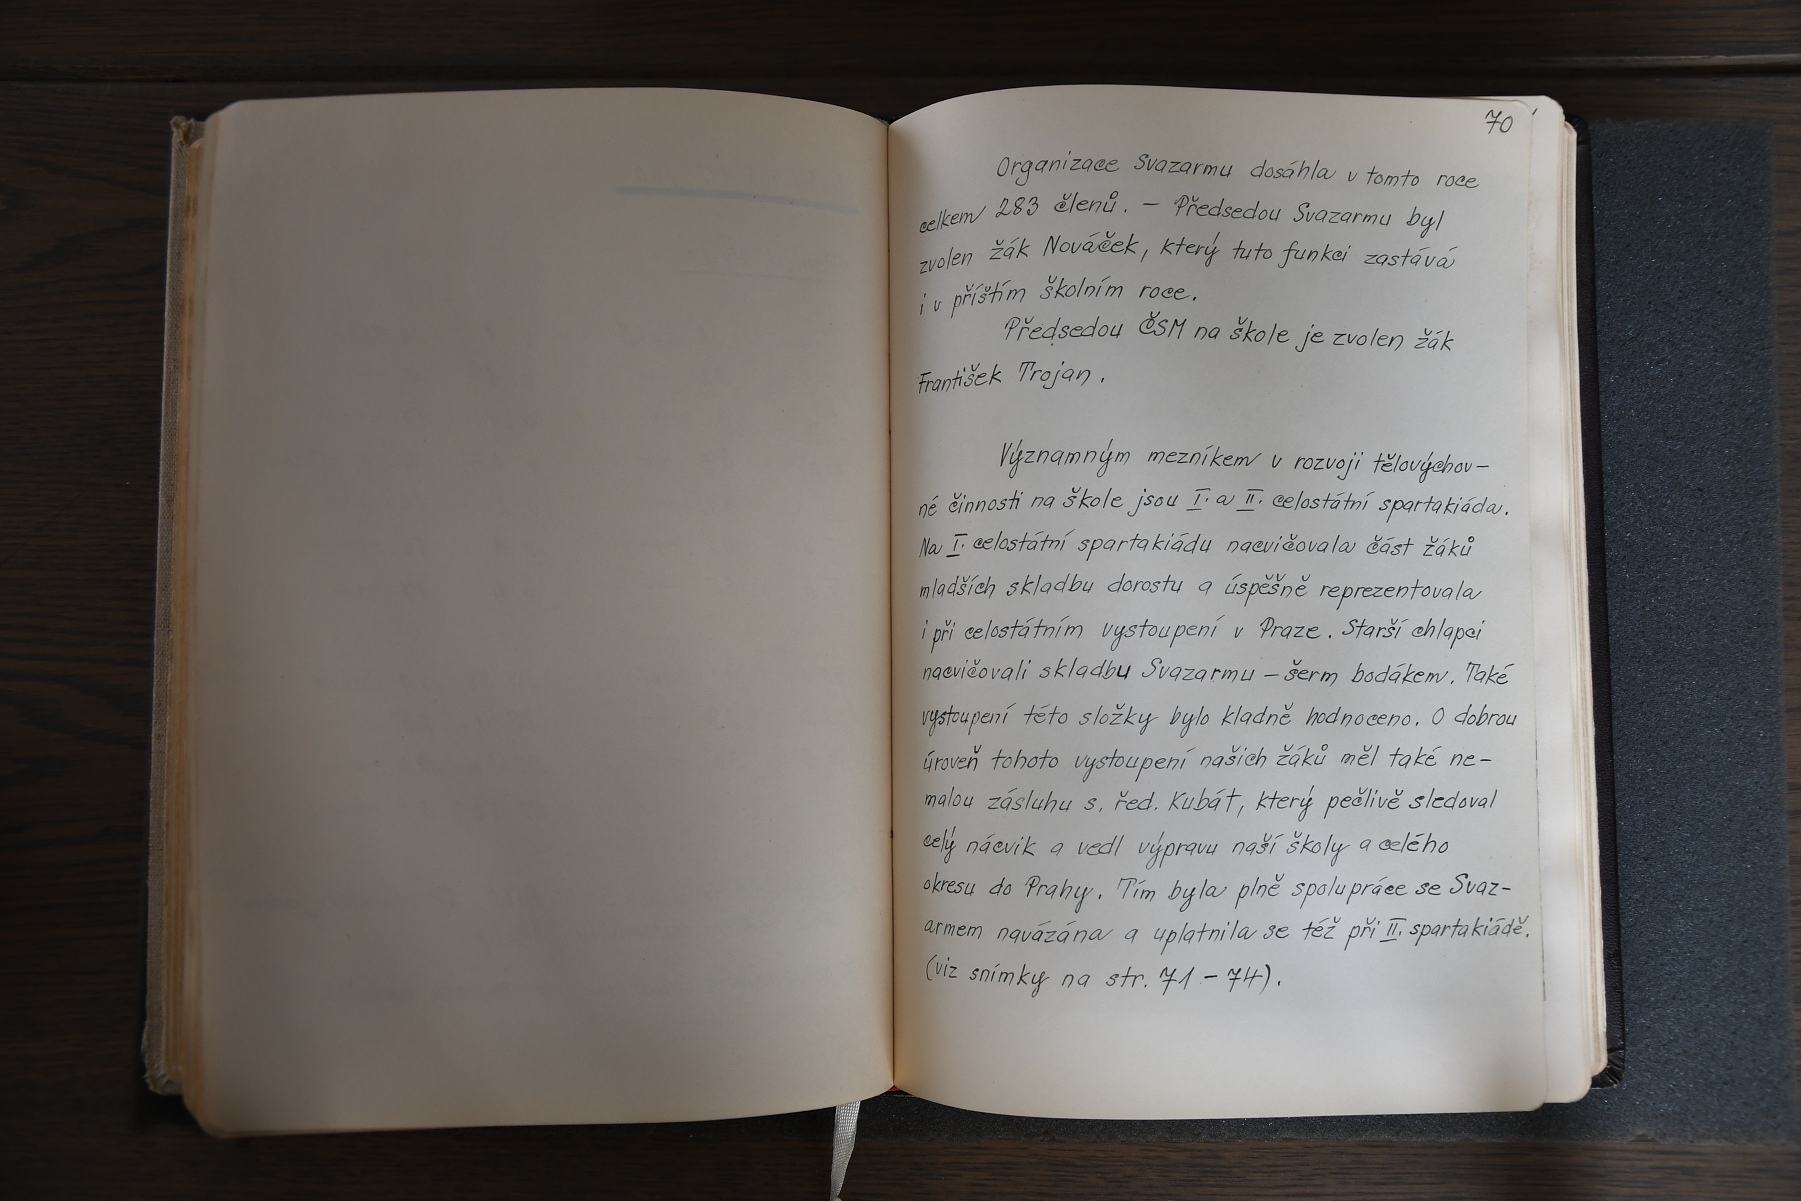 70
Organizace Svazarmu dosáhla v tomto roce
celkem 283 členů. – Předsedou Svazarmu byl
zvolen žák Nováček, který tuto funkci zastává
i v příštím školním roce.
Předsedou ČSM na škole je zvolen žák
František Trojan.
Významným mezníkem v rozvoji tělovýchov–
né činnosti na škole jsou I. a II. celostátní spartakiáda.
Na I. celostátní spartakiádu nacvičovala část žáků
mladších skladbu dorostu a úspěšně reprezentovala
i při celostátním vystoupení v Praze. Starší chlapci
nacvičovali skladbu Svazarmu – šerm bodákem. Také
vystoupení této složky bylo kladně hodnoceno. O dobrou
úroveň tohoto vystoupení našich žáků měl také ne–
malou zásluhu s. řed. Kubát, který pečlivě sledoval
celý nácvik a vedl výpravu naší školy a celého
okresu do Prahy. Tím byla plně spolupráce se Svaz–
armem navázána a uplatnila se též při II. spartakiádě.
(viz snímky na str. 71 – 74).